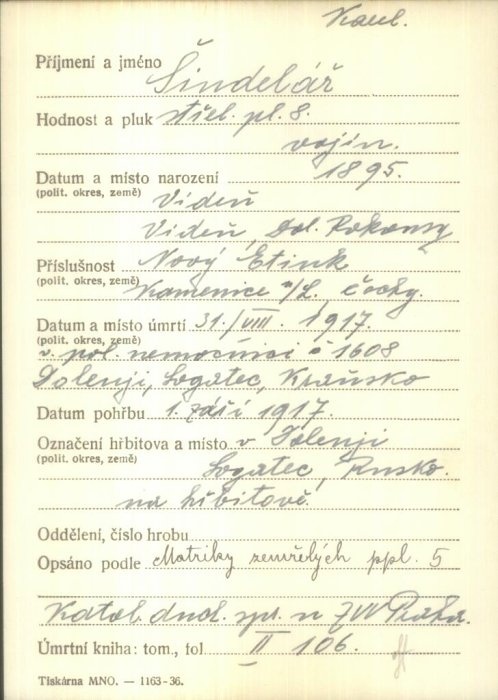 Karel.
Příjmení a jméno Šindelář
Hodnost a pluk střel. pl. 8.
vojín.
Datum a místo narození 1895.
(polit. okres, země) Vídeň
Vídeň, Dol. Rakousy
Příslušnost Nový Etink
(polit. okres, země) Kamenice n/L, Čechy.
Datum a místo úmrtí 31./VIII. 1917.
(polit. okres, země)
v pol. nemocnici č 1608
Dolenji, Logatec, Kraňsko
Datum pohřbu 1. září 1917.
Označení hřbitova a místo v Dolenji
(polit. okres, země) Logatec, Rusko.
na hřbitově.
Oddělení, číslo hrobu
Opsáno podle Matriky zemřelých ppl. 5
Katol. duch. spr. n ZVV Praha.
Úmrtní kniha: tom., fol II 106.
Tiskárna MNO. — 1163-36.